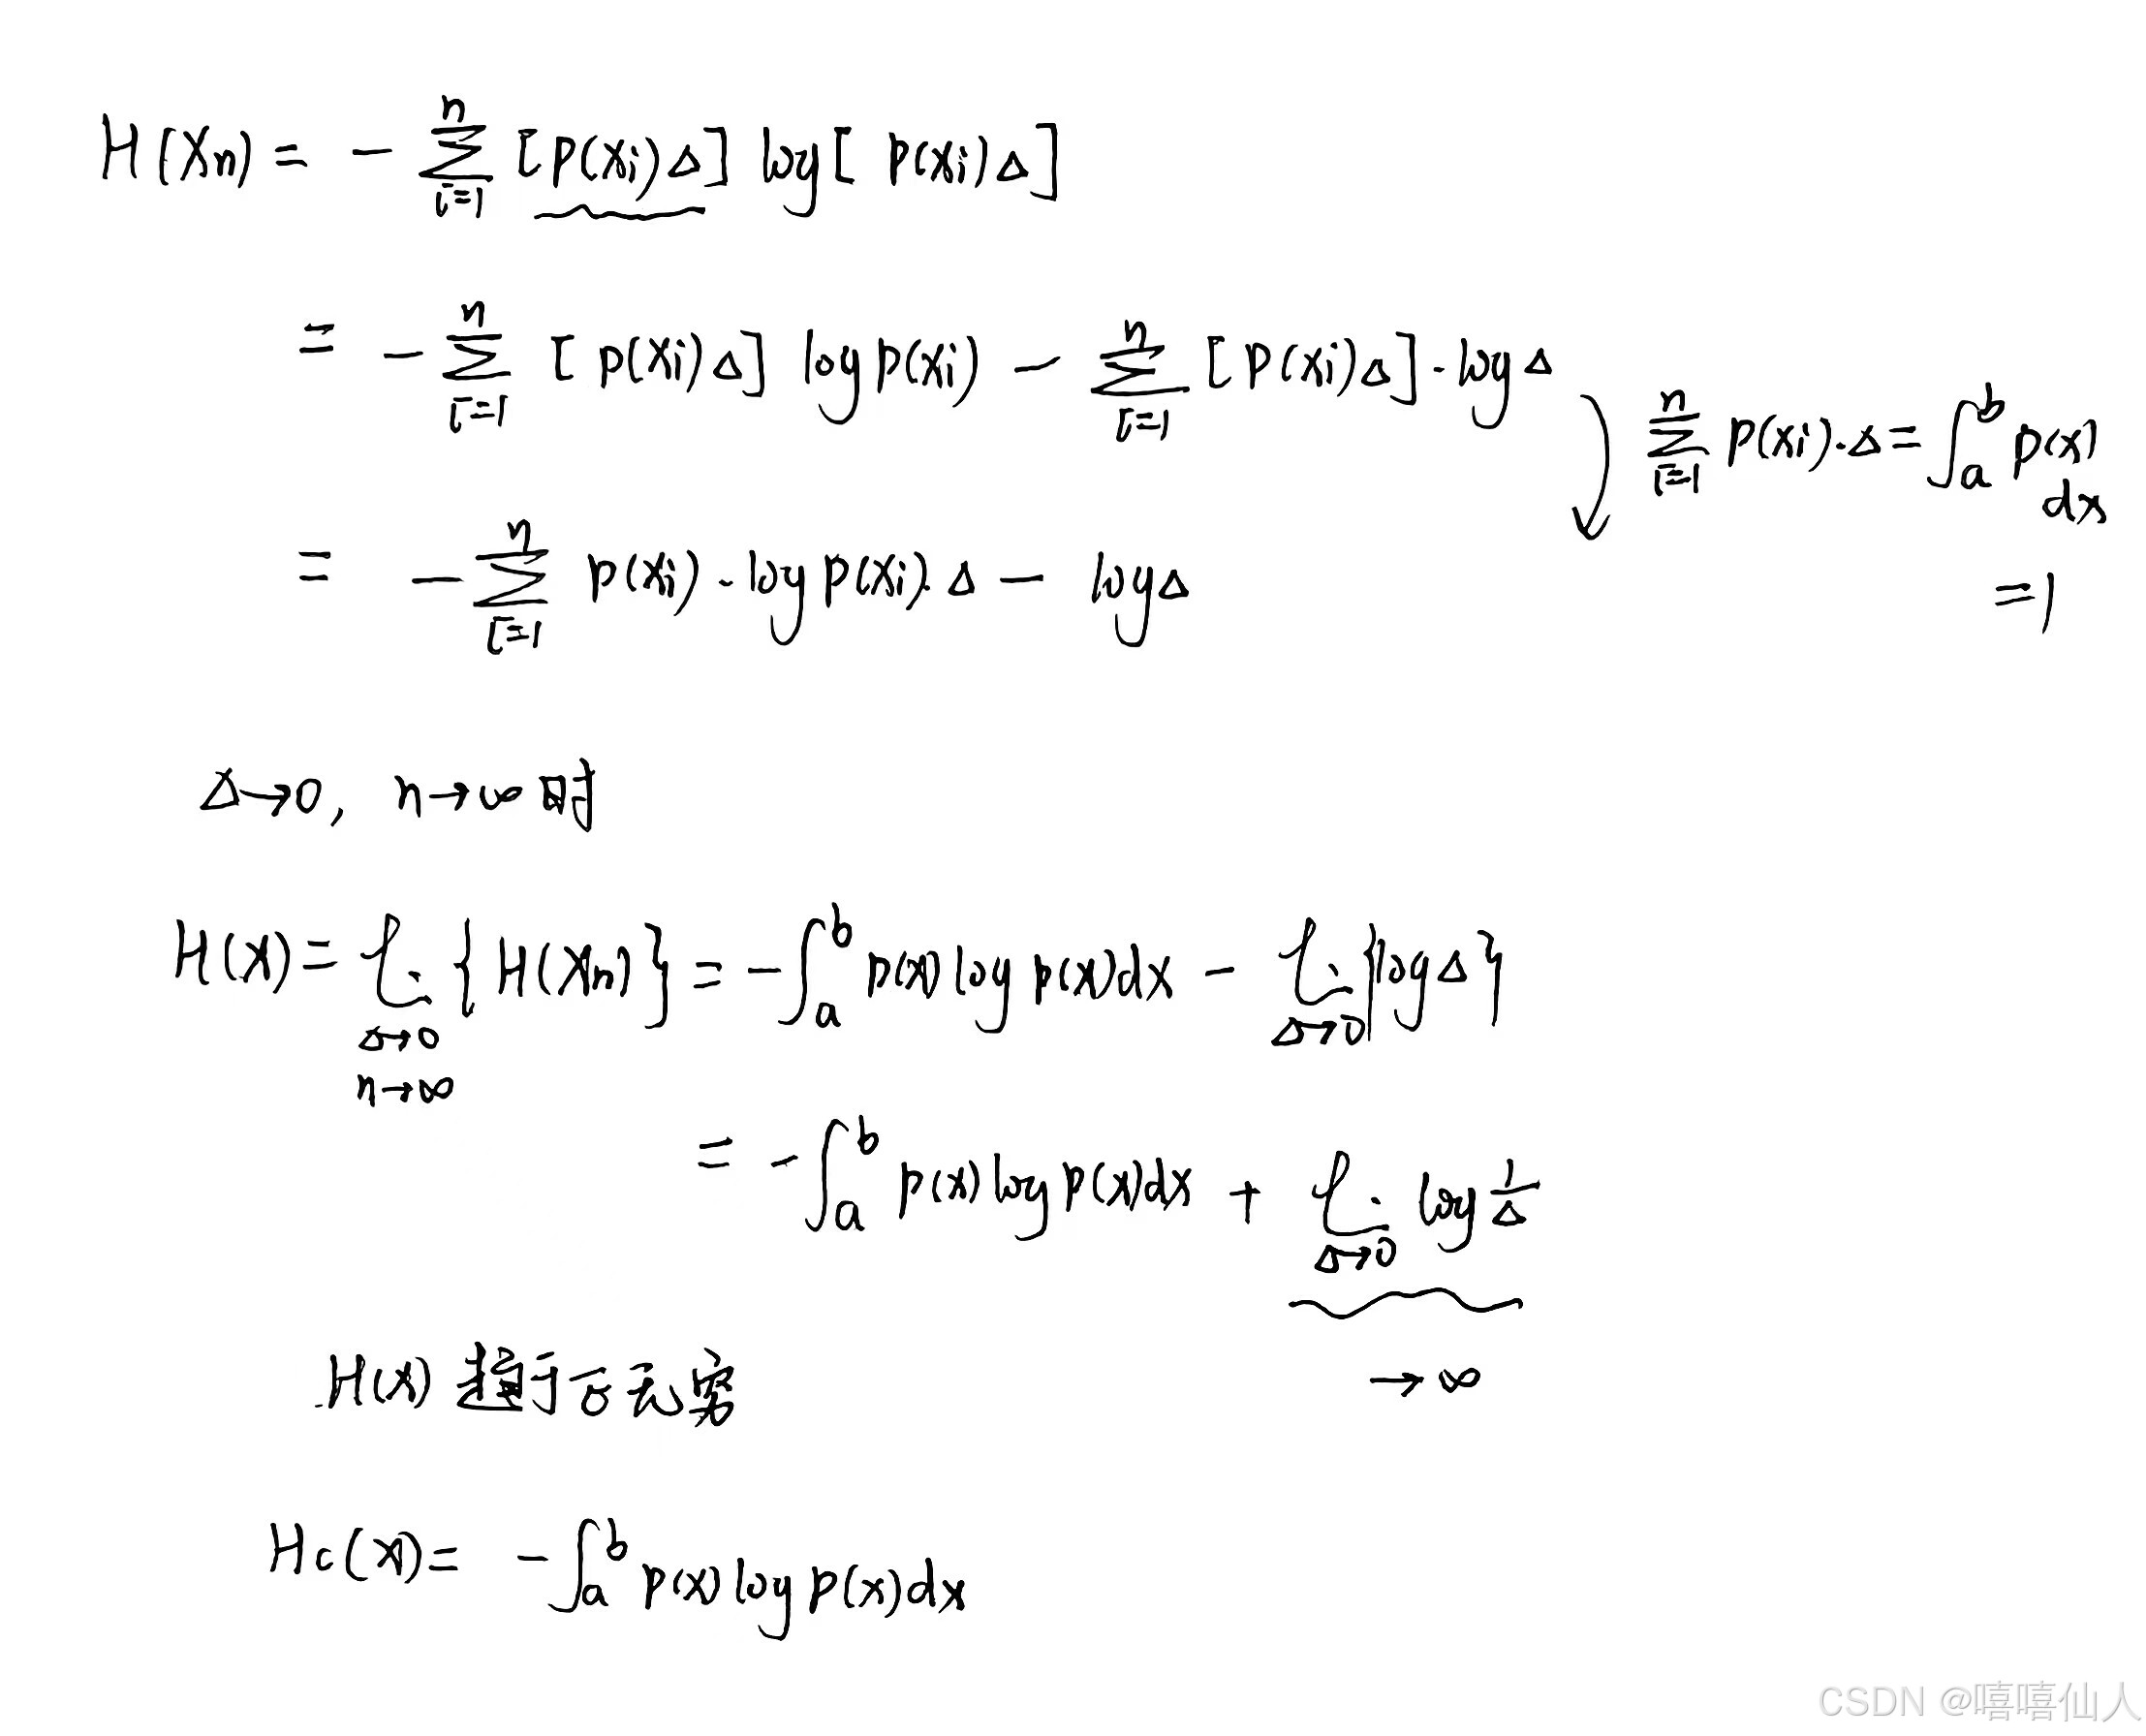 H(Xn) = - \sum_{i=1}^{n} [p(xi)Δ] log[p(xi)Δ]
= - \sum_{i=1}^{n} [p(xi)Δ] log p(xi) - \sum_{i=1}^{n} [p(xi)Δ]·logΔ
\sum_{i=1}^{n} p(xi)·Δ = \int_a^b p(x) dx
= - \sum_{i=1}^{n} p(xi)·log p(xi)·Δ - logΔ
=1
Δ→0, n→∞时
H(X) = \lim_{Δ→0, n→∞} {H(Xn)} = - \int_a^b p(x) log p(x)dx - \lim_{Δ→0} {logΔ}
= - \int_a^b p(x) log p(x)dx + \lim_{Δ→0} log \frac{1}{Δ}
H(x) 趋于无穷
→∞
Hc(X) = - \int_a^b p(x) log p(x)dx
CSDN @嘻嘻仙人